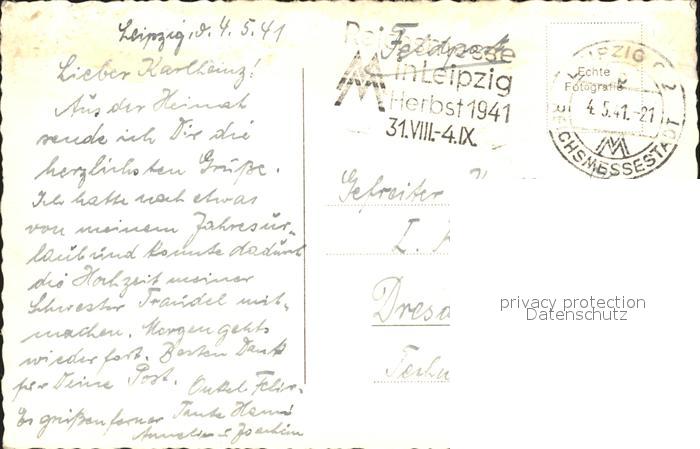 Leipzig, d. 4.5.41
Lieber Karlheinz!
Aus der Heimat
sende ich Dir die
herzlichsten Grüße.
Ich hatte noch etwas
von meinem Jahresur-
laub und konnte dadurch
die Hochzeit meiner
Schwester Traudel mit-
machen. Morgen gehts
wieder fort. Besten Dank
für Deine Post. Onkel Felix.
Es grüßen ferner Tante Hanni
Annelies u. Joachim
Feldpost
Reichsmesse
in Leipzig
Herbst 1941
31.VIII.-4.IX.
LEIPZIG C 2
4.5.41.-21
REICHSMESSESTADT
Echte
Fotografie
Gefreiter
I.
Dresd
Techn
privacy protection
Datenschutz